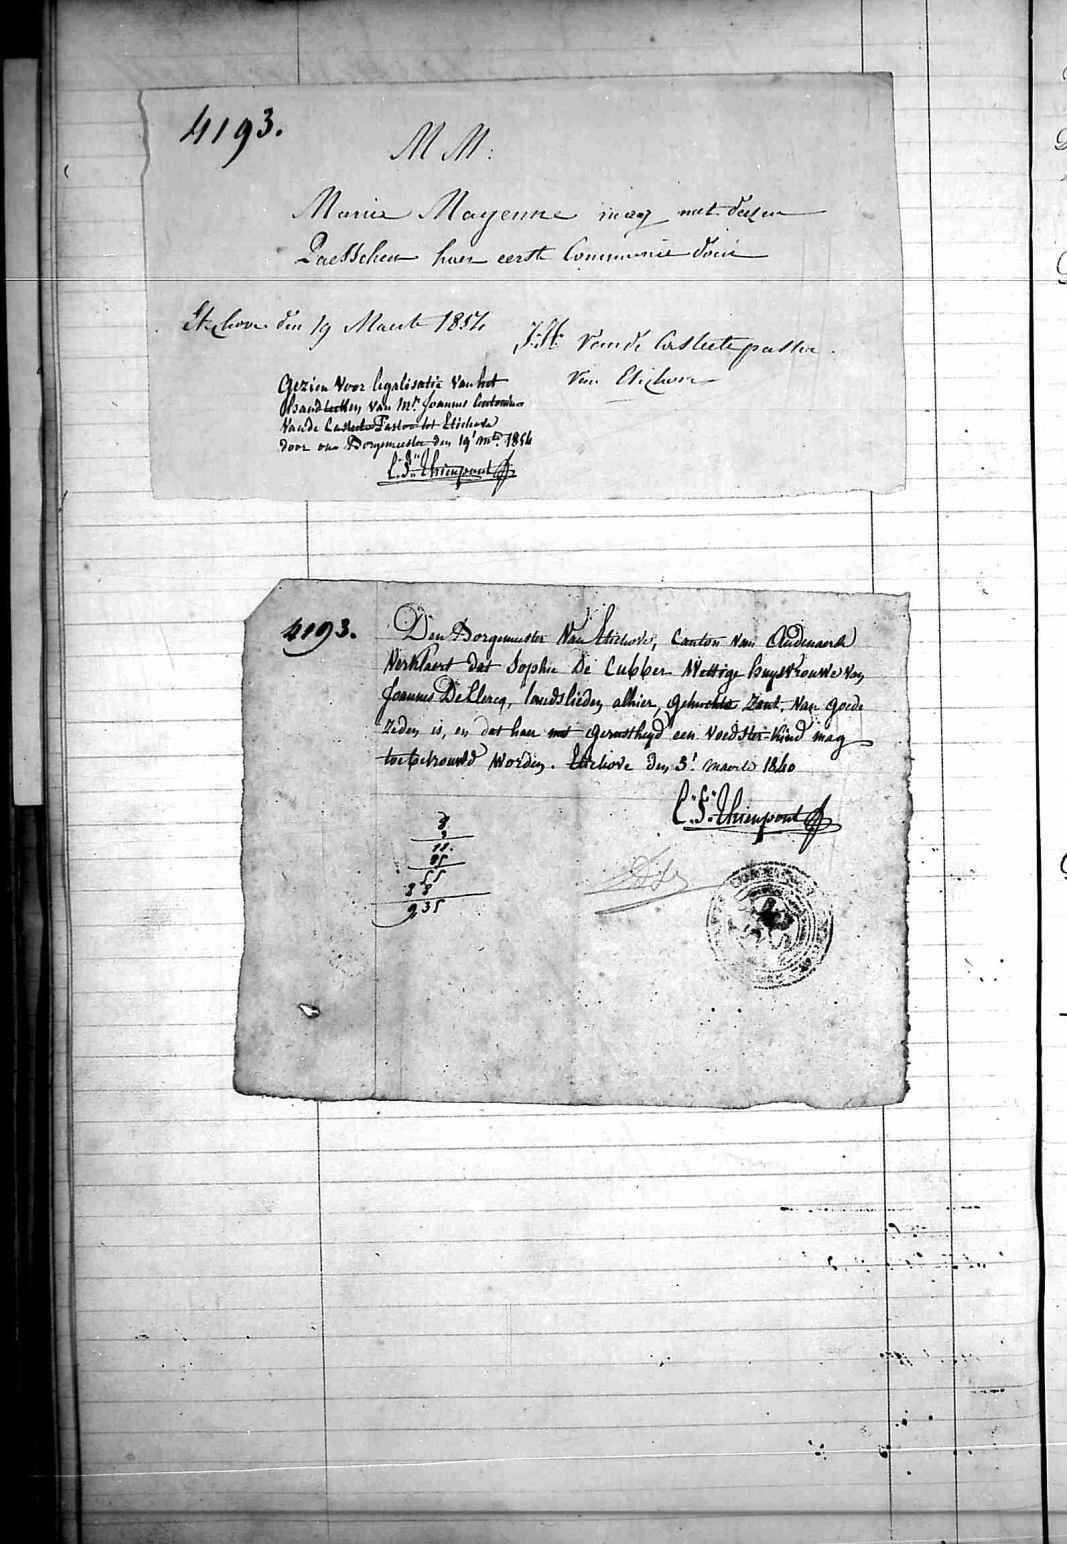 4193.
M M:
Marie Mayenne mag met deesen
Paesschen haer eerste Communie doen
Etichove den 19 Maerte 1854
J:H: Van de Casteele pastor
van Etichove
Gezien voor legalisatie van het
handteeken van Mr. Joannes
Van de Casteele Pastoor tot Etichove
door ons Borgemeester den 19' mte. 1854
C: F: Thienpont
4193.
Den Borgemeester Van Etichove, Canton van Audenaerde
Verklaert dat Sophie De Cubber Wettige huysvrouwe van
Joannes De Clercq, landslieden alhier, gehuchte Zant, van goede
zeden is, en dat haer met gerustheyd een voedster-kind mag
toebetrouwd worden. Etichove den 3' maerte 1840
C: F: Thienpont
8
3
11.
85
55
88
935